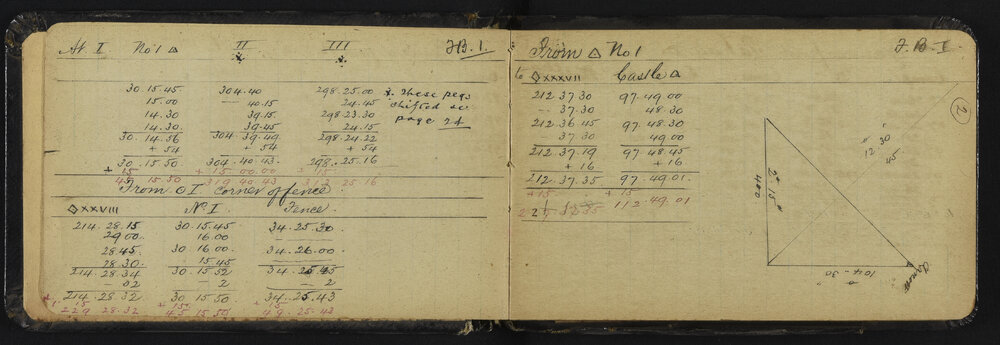 At I No 1 △ II III F.B.1.
30.15.45 304.40 298.25.00 * These pegs
15.00 — 40.15 24.45 shifted see
14.30 39.15 298.23.30 page 24
14.30 39.45 24.15
30.14.56 304.39.49 298.24.22
+ 54 + 54 + 54
30.15.50 304.40.43 298.25.16
+ 15 + 15.00.00 + 15
45 15.50 319 40 43 313 25 16
From O I Corner of fence
XXVIII No. I Fence
214.28.15 30.15.45 34.25.30
29.00 16.00
28.45 30.16.00 34.26.00
28.30 15.45
214.28.34 30.15.52 34.25.45
— 02 — 2 — 2
214.28.32 30.15.50 34.25.43
+ 15 + 15 + 15
229.28.32 45 15 50 49.25.43
From △ No 1 F.B.I.
to XXXVII Castle △
212.37.30 97.49.00
— 37.30 48.30
212.36.45 97.48.30
— 37.30 49.00
212.37.19 97.48.45
+ 16 + 16
212.37.35 97.49.01
+15 + 15
112.49.01
2
12 30
45
2° 15
400
104-30